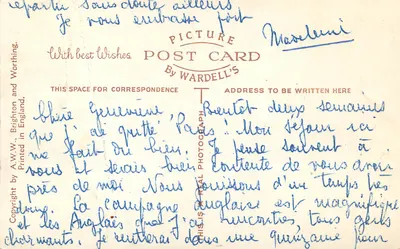 repartir sans doute, ailleurs
Je vous embrasse fort
Madeleine
With best Wishes
PICTURE
POST CARD
By WARDELL'S
THIS SPACE FOR CORRESPONDENCE
ADDRESS TO BE WRITTEN HERE
Copyright by A.W.W., Brighton and Worthing.
Printed in England.
THIS IS A REAL PHOTOGRAPH
Chère Geneviève, Bientôt deux semaines
que j'ai quitté Paris! Mon séjour ici
me fait du bien. Je pense souvent à
vous et serais bien contente de vous avoir
près de moi. Nous jouissons d'un temps très
doux. La campagne anglaise est magnifique
et les Anglais que j'ai rencontrés, tous gens
charmants. Je rentrerai dans une quinzaine pour